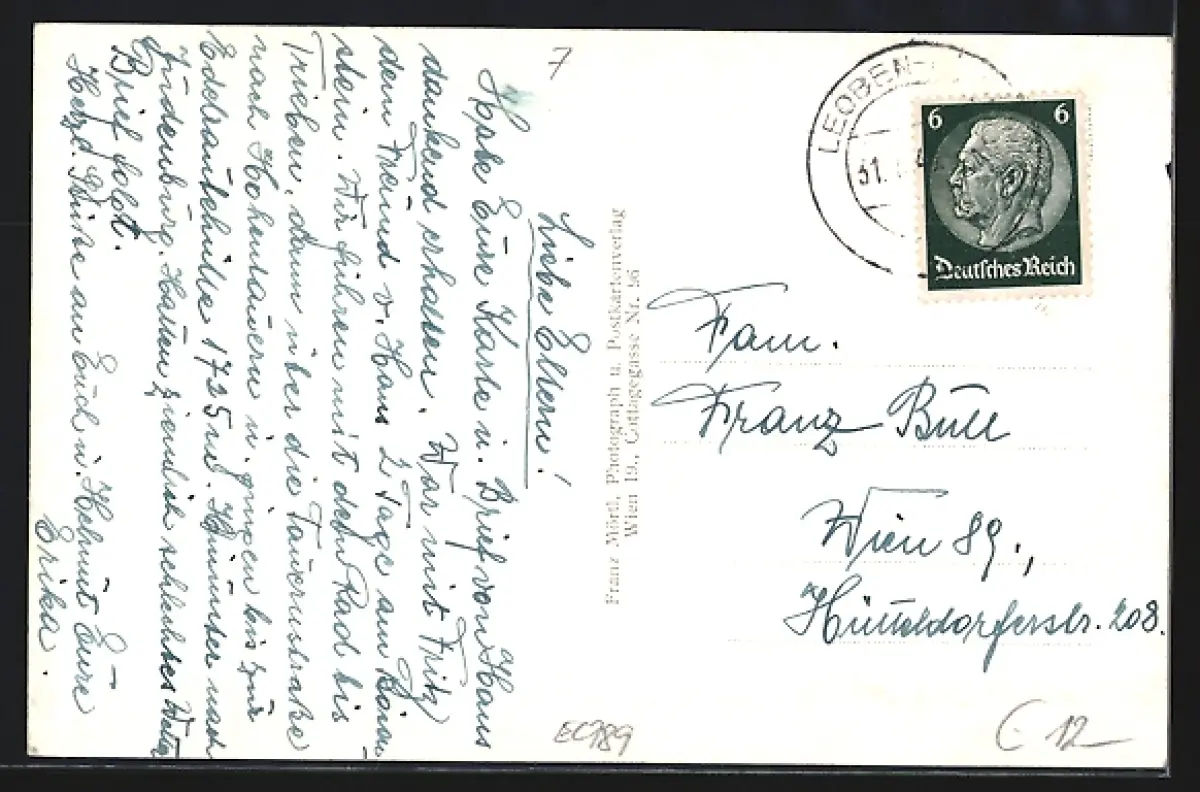 7
Liebe Eltern!
Habe Eure Karte u. Brief von Hans
dankend erhalten. War mit Fritz
dem Freund v. Hans 2 Tage am Bösen-
stein. Wir fuhren mit dem Rad bis
Trieben, dann über die Tauernstraße
nach Hohentauern u. gingen bis zur
Edelrautehütte 1725 m. Hinunter nach
Judenburg. Hatten ziemlich schlechtes Wetter
Brief folgt.
Herzl. Grüße an Euch u. Helmut Eure
Erika.
Franz Mörtl, Photograph u. Postkartenverlag
Wien 19., Cottagegasse Nr. 56
LEOBEN
31.
6 6
Deutsches Reich
Fam.
Franz Bull
Wien 89.,
Hütteldorferstr. 208.
EC989
€ 12